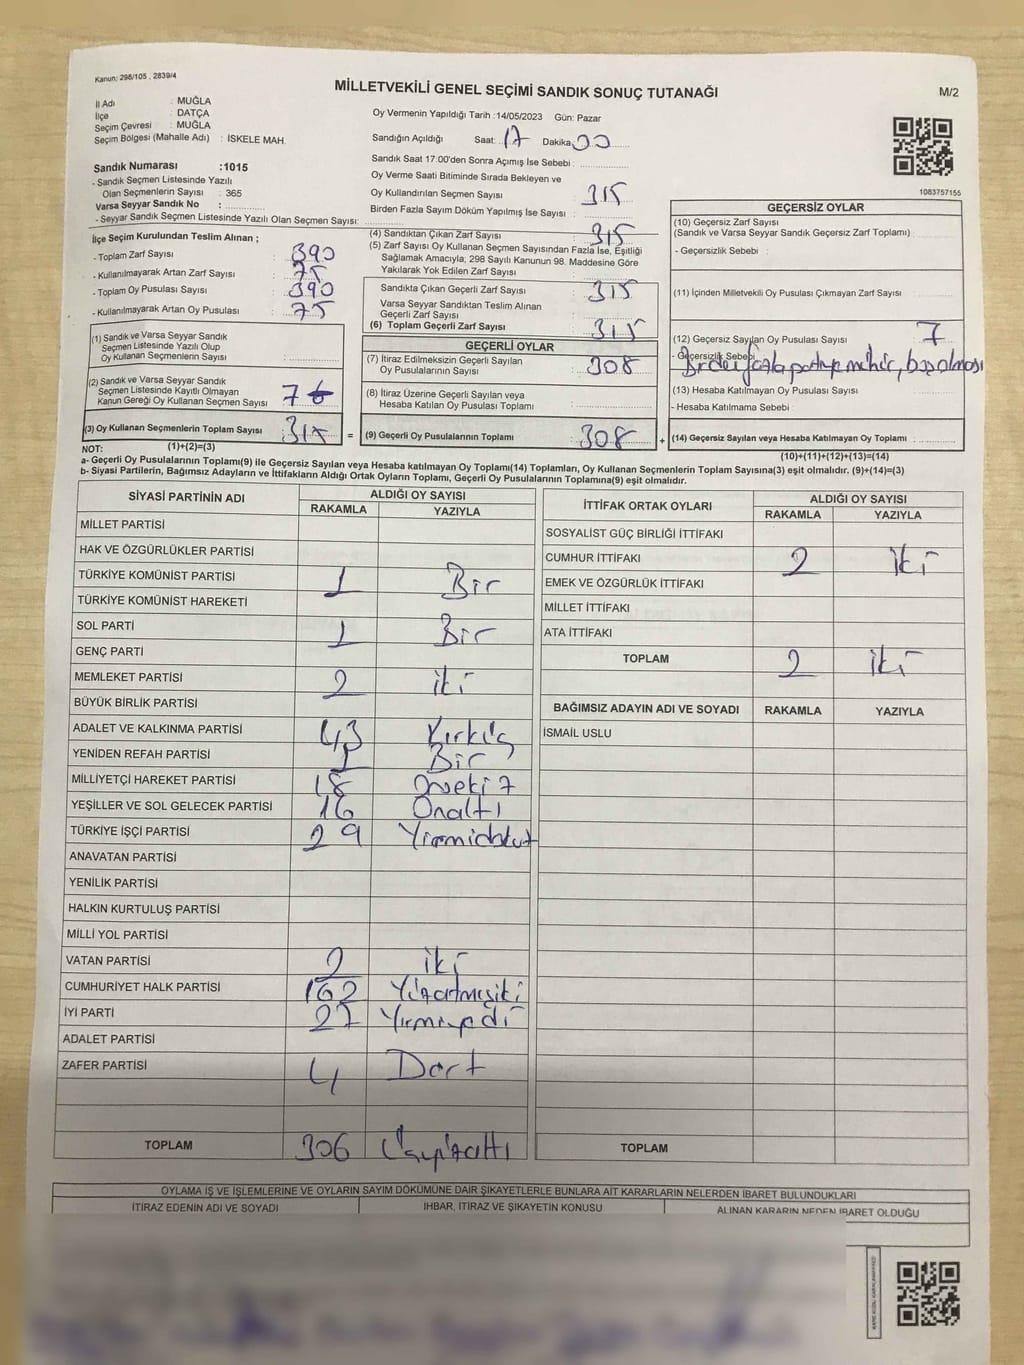 Kanun: 298/105 , 2839/4
MİLLETVEKİLİ GENEL SEÇİMİ SANDIK SONUÇ TUTANAĞI
M/2
İl Adı : MUĞLA
İlçe : DATÇA
Seçim Çevresi : MUĞLA
Seçim Bölgesi (Mahalle Adı) : İSKELE MAH.
Sandık Numarası :1015
- Sandık Seçmen Listesinde Yazılı
Olan Seçmenlerin Sayısı : 365
Varsa Seyyar Sandık No :
- Seyyar Sandık Seçmen Listesinde Yazılı Olan Seçmen Sayısı:
Oy Vermenin Yapıldığı Tarih :14/05/2023 Gün: Pazar
Sandığın Açıldığı Saat: 17 Dakika 00
Sandık Saat 17:00'den Sonra Açımış İse Sebebi :
Oy Verme Saati Bitiminde Sırada Bekleyen ve
Oy Kullandırılan Seçmen Sayısı : 315
Birden Fazla Sayım Döküm Yapılmış İse Sayısı :
1083757155
İlçe Seçim Kurulundan Teslim Alınan ;
- Toplam Zarf Sayısı : 390
- Kullanılmayarak Artan Zarf Sayısı : 75
- Toplam Oy Pusulası Sayısı : 390
- Kullanılmayarak Artan Oy Pusulası : 75
(1) Sandık ve Varsa Seyyar Sandık
Seçmen Listesinde Yazılı Olup
Oy Kullanan Seçmenlerin Sayısı :
(2) Sandık ve Varsa Seyyar Sandık
Seçmen Listesinde Kayıtlı Olmayan
Kanun Gereği Oy Kullanan Seçmen Sayısı : 7
(3) Oy Kullanan Seçmenlerin Toplam Sayısı : 315
(4) Sandıktan Çıkan Zarf Sayısı : 315
(5) Zarf Sayısı Oy Kullanan Seçmen Sayısından Fazla İse, Eşitliği
Sağlamak Amacıyla; 298 Sayılı Kanunun 98. Maddesine Göre
Yakılarak Yok Edilen Zarf Sayısı :
Sandıkta Çıkan Geçerli Zarf Sayısı : 315
Varsa Seyyar Sandıktan Teslim Alınan
Geçerli Zarf Sayısı :
(6) Toplam Geçerli Zarf Sayısı : 315
GEÇERLİ OYLAR
(7) İtiraz Edilmeksizin Geçerli Sayılan
Oy Pusulalarının Sayısı : 308
(8) İtiraz Üzerine Geçerli Sayılan veya
Hesaba Katılan Oy Pusulası Toplamı :
= (9) Geçerli Oy Pusulalarının Toplamı : 308
GEÇERSİZ OYLAR
(10) Geçersiz Zarf Sayısı
(Sandık ve Varsa Seyyar Sandık Geçersiz Zarf Toplamı) :
- Geçersizlik Sebebi :
(11) İçinden Milletvekili Oy Pusulası Çıkmayan Zarf Sayısı :
(12) Geçersiz Sayılan Oy Pusulası Sayısı : 7
- Geçersizlik Sebebi Birden fazla partiye mühür, boş olması
(13) Hesaba Katılmayan Oy Pusulası Sayısı :
- Hesaba Katılmama Sebebi :
+ (14) Geçersiz Sayılan veya Hesaba Katılmayan Oy Toplamı :
NOT: (1)+(2)=(3)
(10)+(11)+(12)+(13)=(14)
a- Geçerli Oy Pusulalarının Toplamı(9) ile Geçersiz Sayılan veya Hesaba katılmayan Oy Toplamı(14) Toplamları, Oy Kullanan Seçmenlerin Toplam Sayısına(3) eşit olmalıdır. (9)+(14)=(3)
b- Siyasi Partilerin, Bağımsız Adayların ve İttifakların Aldığı Ortak Oyların Toplamı, Geçerli Oy Pusulalarının Toplamına(9) eşit olmalıdır.
SİYASİ PARTİNİN ADI ALDIĞI OY SAYISI
RAKAMLA YAZIYLA
MİLLET PARTİSİ
HAK VE ÖZGÜRLÜKLER PARTİSİ
TÜRKİYE KOMÜNİST PARTİSİ 1 Bir
TÜRKİYE KOMÜNİST HAREKETİ
SOL PARTİ 1 Bir
GENÇ PARTİ
MEMLEKET PARTİSİ 2 iki
BÜYÜK BİRLİK PARTİSİ
ADALET VE KALKINMA PARTİSİ 43 Kırküç
YENİDEN REFAH PARTİSİ 1 Bir
MİLLİYETÇİ HAREKET PARTİSİ 18 Onseki z
YEŞİLLER VE SOL GELECEK PARTİSİ 16 Onaltı
TÜRKİYE İŞÇİ PARTİSİ 29 Yirmidokuz
ANAVATAN PARTİSİ
YENİLİK PARTİSİ
HALKIN KURTULUŞ PARTİSİ
MİLLİ YOL PARTİSİ
VATAN PARTİSİ 2 iki
CUMHURİYET HALK PARTİSİ 162 Yüzatmışiki
İYİ PARTİ 27 Yirmiyedi
ADALET PARTİSİ
ZAFER PARTİSİ 4 Dört
TOPLAM 306 Üçyüzaltı
İTTİFAK ORTAK OYLARI ALDIĞI OY SAYISI
RAKAMLA YAZIYLA
SOSYALİST GÜÇ BİRLİĞİ İTTİFAKI
CUMHUR İTTİFAKI 2 iki
EMEK VE ÖZGÜRLÜK İTTİFAKI
MİLLET İTTİFAKI
ATA İTTİFAKI
TOPLAM 2 iki
BAĞIMSIZ ADAYIN ADI VE SOYADI RAKAMLA YAZIYLA
İSMAİL USLU
TOPLAM
OYLAMA İŞ VE İŞLEMLERİNE VE OYLARIN SAYIM DÖKÜMÜNE DAİR ŞİKAYETLERLE BUNLARA AİT KARARLARIN NELERDEN İBARET BULUNDUKLARI
İTİRAZ EDENİN ADI VE SOYADI İHBAR, İTİRAZ VE ŞİKAYETİN KONUSU ALINAN KARARIN NEDEN İBARET OLDUĞU